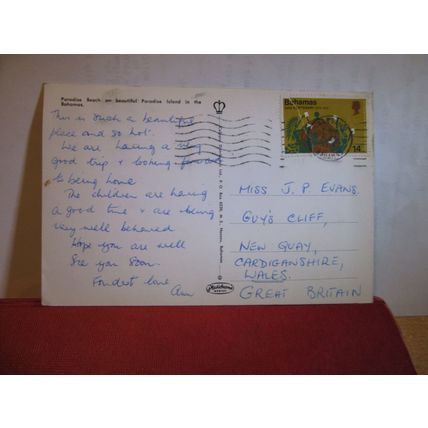 Paradise Beach on beautiful Paradise Island in the
Bahamas.
This is such a beautiful
place and so hot.
We are having a very
good trip & looking forward
to being home
The children are having
a good time & are being
very well behaved
Hope you are well
See you soon
Fondest love
Ann
Bahamas
14c
MISS J. P. EVANS.
GUY'S CLIFF,
NEW QUAY,
CARDIGANSHIRE,
WALES.
GREAT BRITAIN